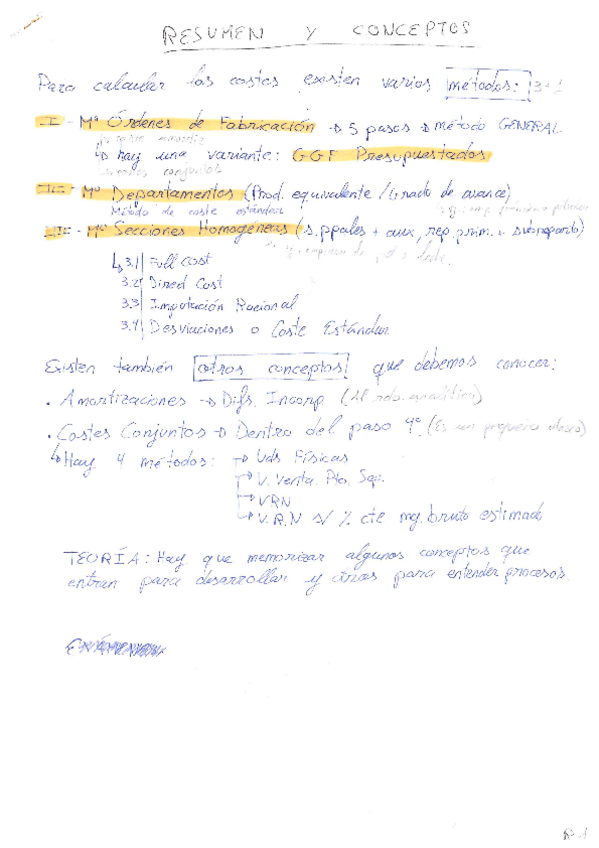 RESUMEN Y CONCEPTOS
Para calcular los costes existen varios métodos: 3+1
I - Mº Órdenes de Fabricación → 5 pasos → método GENERAL
↳ hay una variante: GGF Presupuestados
conjuntos
II - Mº Departamentos (Prod. equivalente / Grado de avance)
Método de coste estándar
III - Mº Secciones Homogéneas (s. ppales + aux, rep. prim. + subreparto)
↳ 3.1 Full Cost
3.2 Direct Cost
3.3 Imputación Racional
3.4 Desviaciones o Coste Estándar
Existen también otros conceptos que debemos conocer:
· Amortizaciones → Difs. Incorp. (Al rdo. analítico)
· Costes Conjuntos → Dentro del paso 4º. (Es un pequeño)
↳ Hay 4 métodos: → Uds Físicas
→ V. Venta. Pto. Sep.
→ VRN
→ V.R.N s/ % cte mg. bruto estimado
TEORÍA: Hay que memorizar algunos conceptos que
entran para desarrollar y otros para entender procesos
P.1